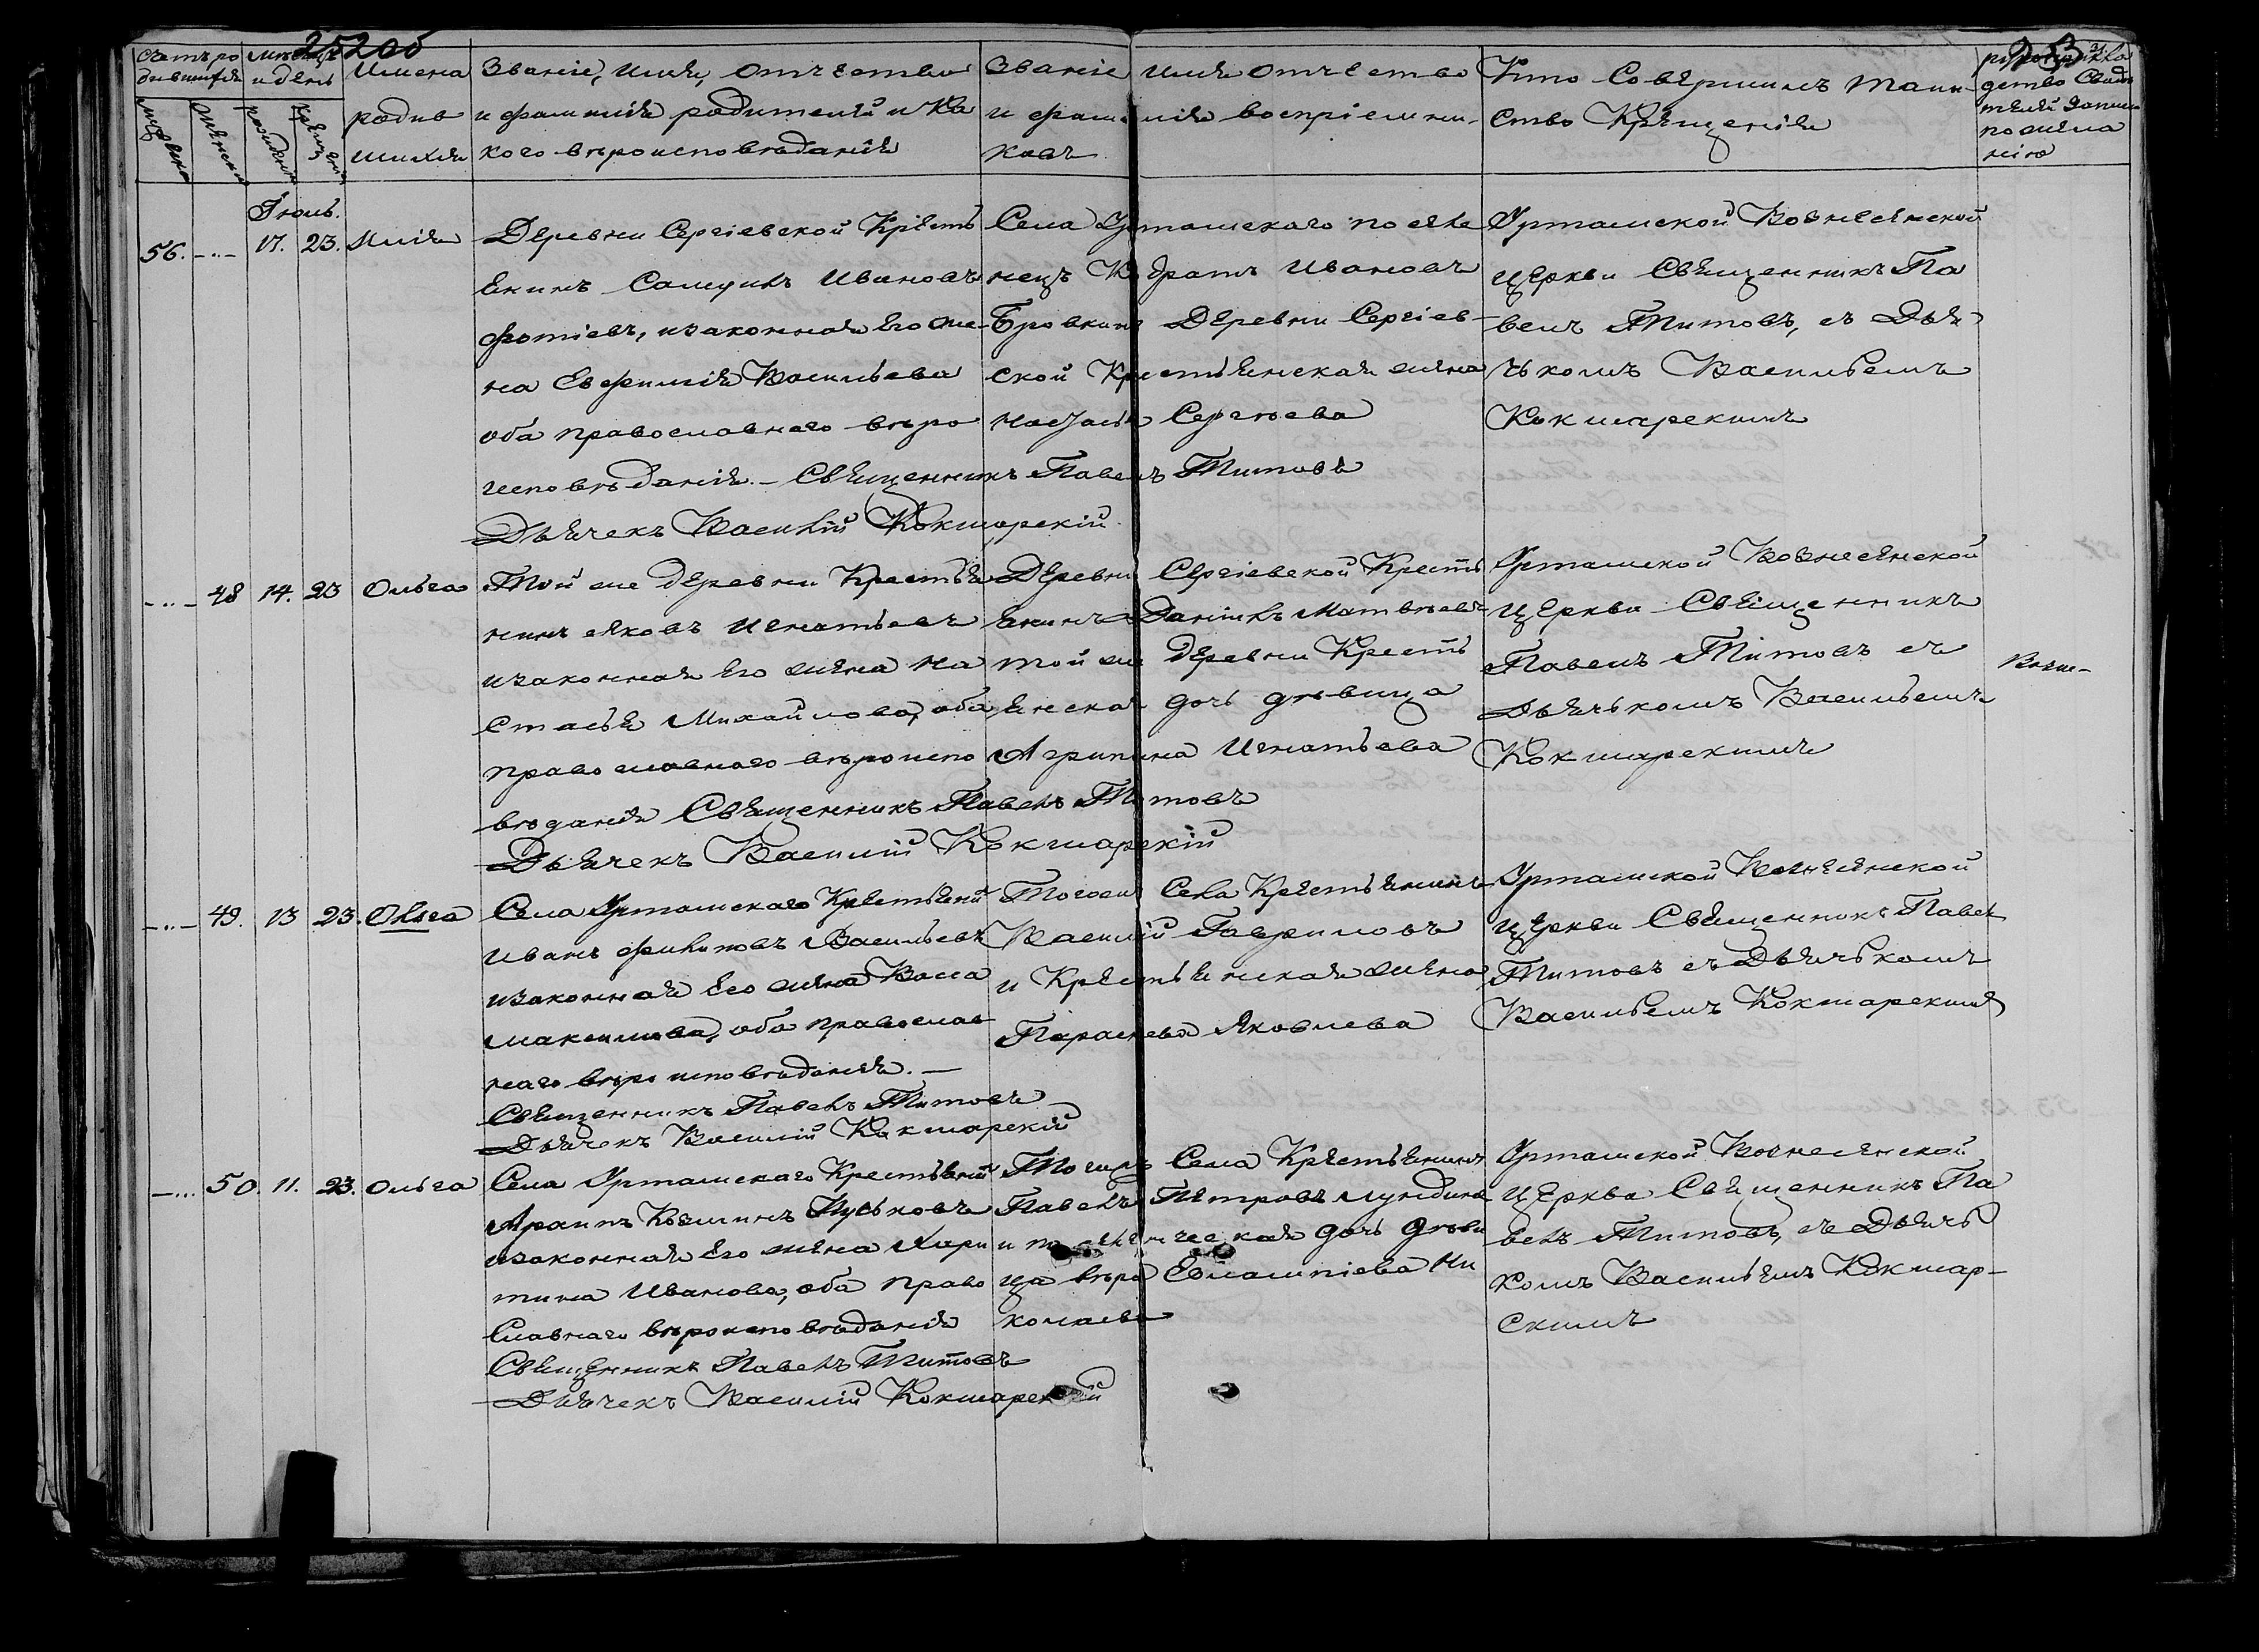 25206
23
Счетъ ро
дившихся
Мѣсяцъ
и день
Имена
родив
шихся
Званіе, имя, отчество
и фамилія родителей и ка
кого вѣроисповѣданія
Званіе имя отчество
и фамилія воспріемни-
ковъ
Кто совершилъ таин-
ство Крещенія
Іюль.
56. 17. 23. Илія
Деревни Сергіевской Кресть
янинъ Самуилъ Ивановъ
Фотіевъ, и законная его же-
на Евфимія Васильева
оба православнаго вѣро
исповѣданія. – Священникъ Павелъ Титовъ
Дьячекъ Василій Кокшарскій
Села Урташскаго поселе
нецъ Кодратъ Ивановъ
Бровкинъ Деревни Сергіев-
ской Крестьянская жена
Сергѣева
Урташской Вознесенской
церкви Священникъ Па
велъ Титовъ, съ Дья
чькомъ Васильемъ
Кокшарскимъ
48 14. 23 Ольга
Той же деревни Крестья
нинъ Яковъ Игнатьевъ
и законная его жена На
стасья Михайлова, оба
православнаго вѣроиспо
вѣданія Священникъ Павелъ Титовъ
Дьячекъ Василій Кокшарскій
Деревни Сергіевской Кресть
янинъ Данилъ Матвѣевъ
той же деревни Кресть
янская дочь дѣвица
Агрипина Игнатьева
Урташской Вознесенской
церкви Священникъ
Павелъ Титовъ съ
Дьячькомъ Васильемъ
Кокшарскимъ
49. 13 23. Ольга
Села Урташскаго Крестьянинъ
Иванъ Филиповъ Васильевъ
и законная его жена Васса
Максимова, оба православ
наго вѣроисповѣданія. –
Священникъ Павелъ Титовъ
Дьячекъ Василій Кокшарскій
Тогоже Села Крестьянинъ
Василій Гавриловъ
и Крестьянская жена
Парасковья Яковлева
Урташской Вознесенской
церкви Священникъ Павелъ
Титовъ съ Дьячькомъ
Васильемъ Кокшарскимъ
50. 11. 23. Ольга
Села Урташскаго Крестьянинъ
и законная его жена Хари
тина Иванова, оба право
славнаго вѣроисповѣданія
Священникъ Павелъ Титовъ
Дьячекъ Василій Кокшарскій
Села Крестьянинъ
Павелъ Петровъ
дочь дѣви
ца Ни
колаева
Урташской Вознесенской
церкви Священникъ Па
велъ Титовъ, съ Дьячь
комъ Васильемъ Кокшар–
скимъ